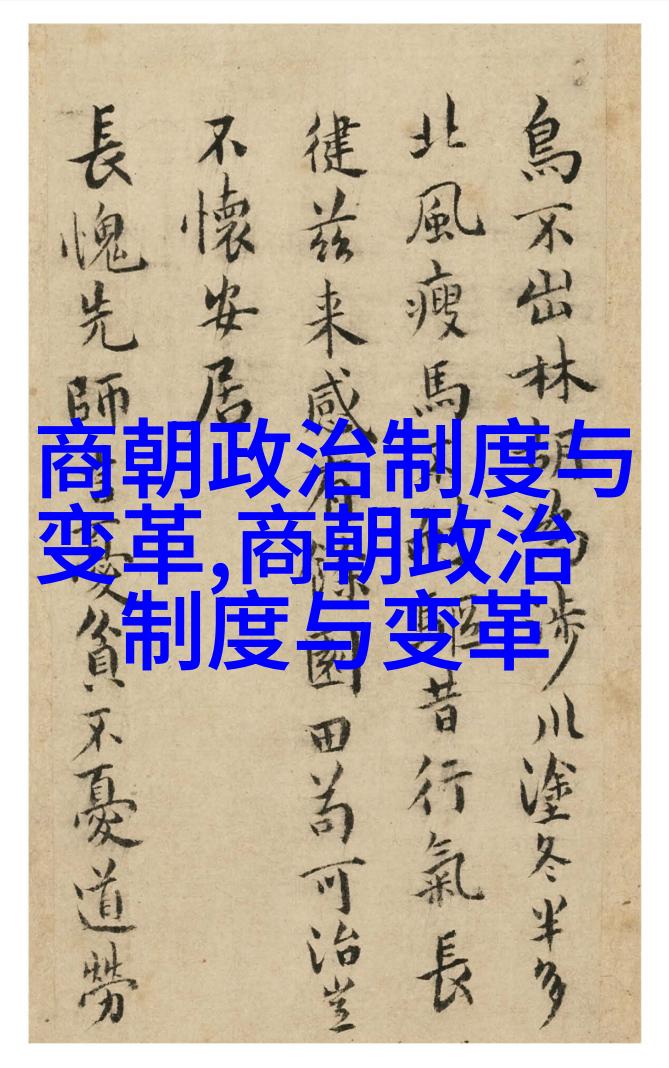 商朝政治制度与
变革,商朝政治
制度与变革
鳥不出林胡為涉川塗冬半多
北風瘦馬昔行氣長
健茲来感餘園田苟可治豈
不懷安居
長愧先師憂貧不憂道勞